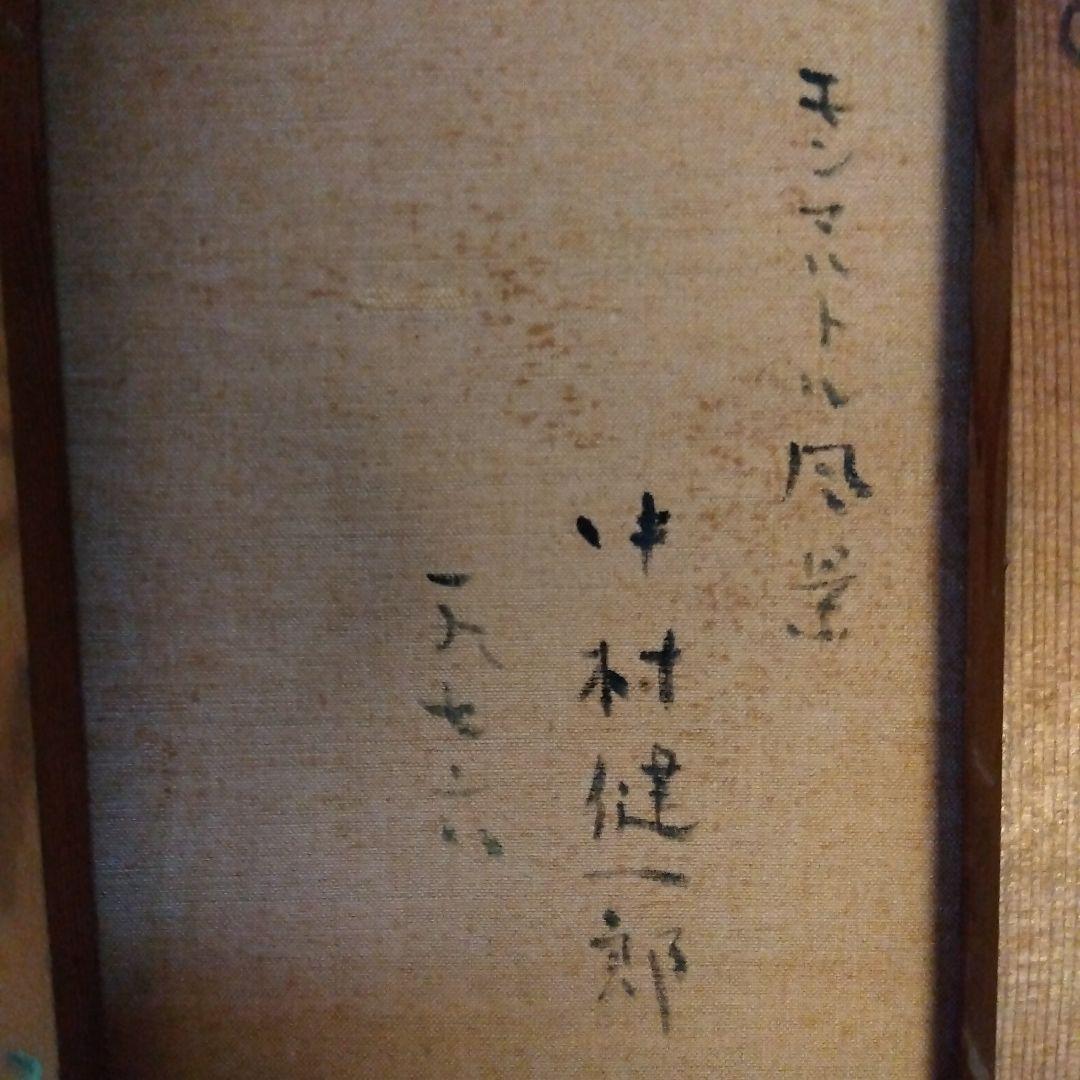 モンマルトル風景
村健一郎
一九七六